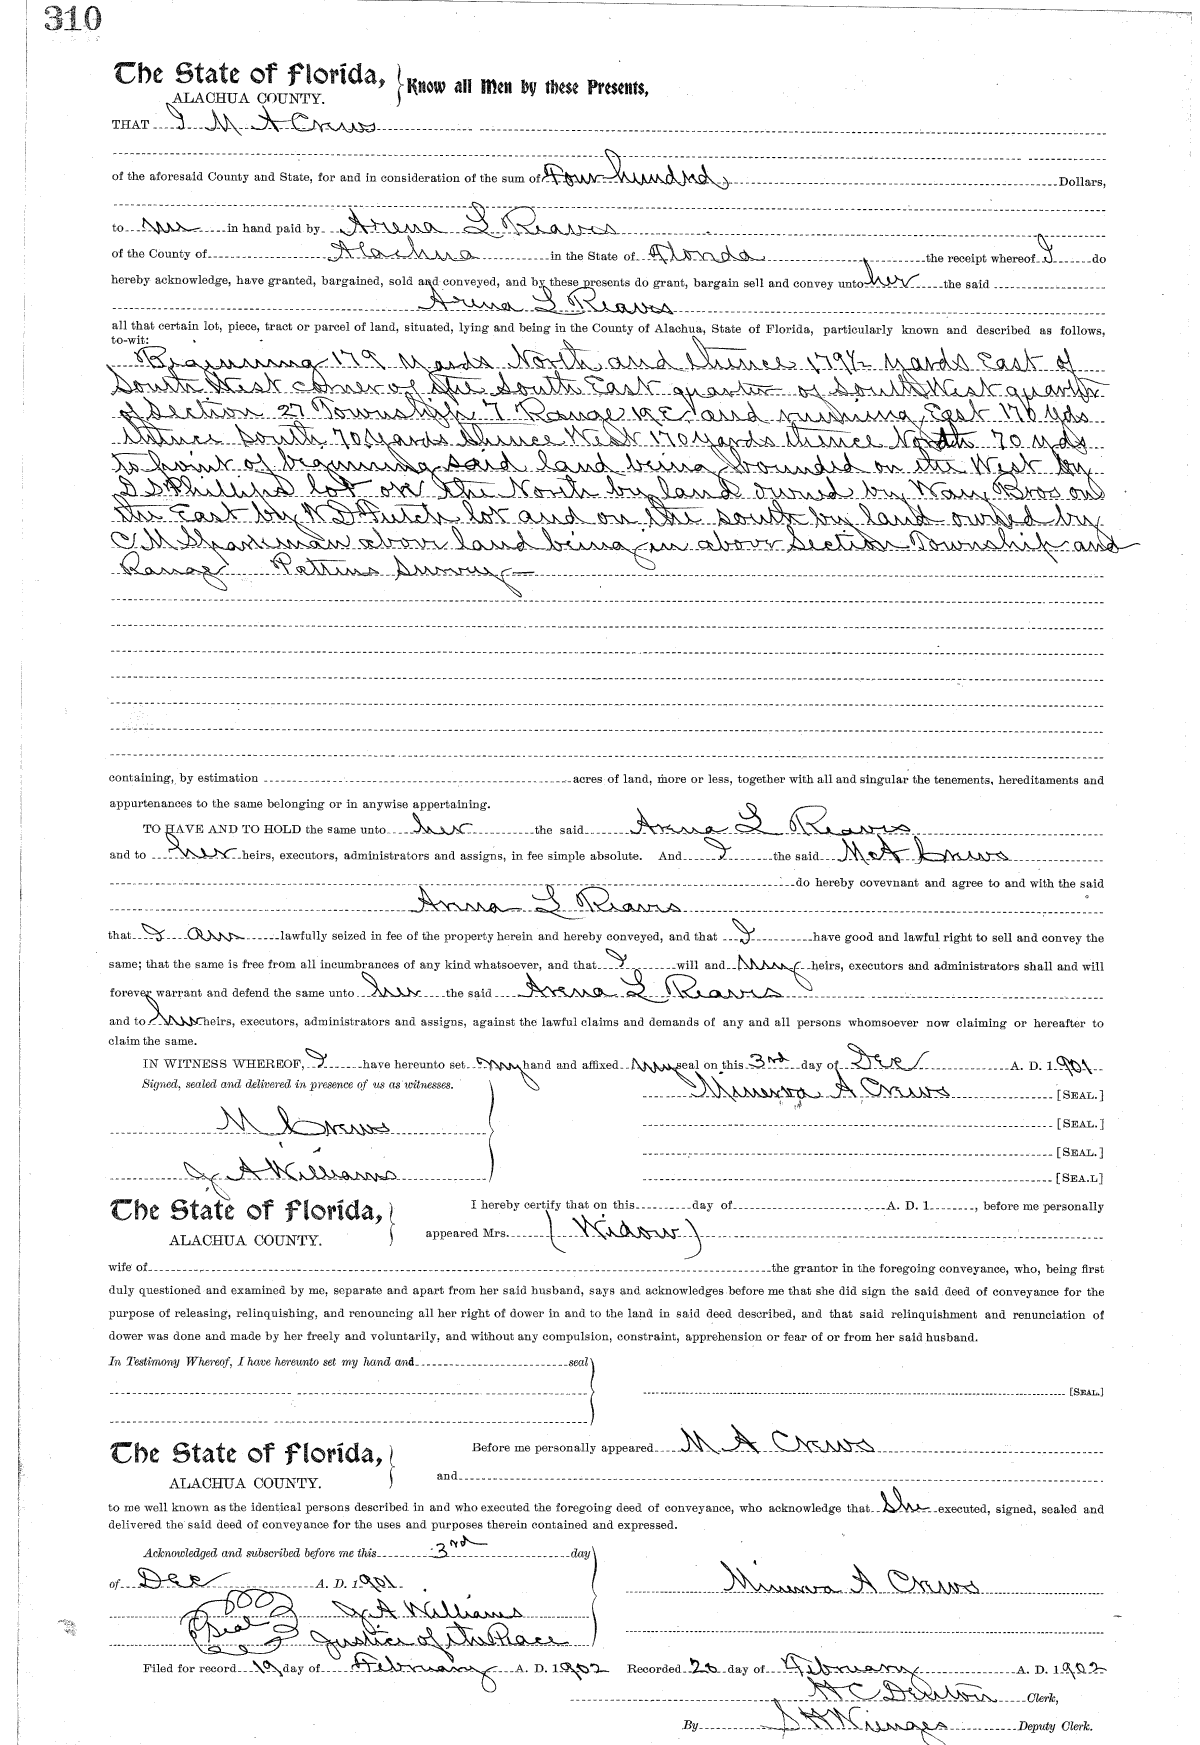 310
The State of Florida, Know all Men by these Presents,
ALACHUA COUNTY.
THAT I M A Crews
of the aforesaid County and State, for and in consideration of the sum of Four hundred, Dollars,
to me in hand paid by Arena L Reaves
of the County of Alachua in the State of Florida the receipt whereof I do
hereby acknowledge, have granted, bargained, sold and conveyed, and by these presents do grant, bargain sell and convey unto her the said
Arena L Reaves
all that certain lot, piece, tract or parcel of land, situated, lying and being in the County of Alachua, State of Florida, particularly known and described as follows,
to-wit:
Beginning 179 Yards North and thence 179½ Yards East of
South West corner of the South East quarter of South West quarter
of Section 27 Township 7 Range 19 E and running East 170 Yds
thence South 70 Yards thence West 170 Yards thence North 70 yds
to point of beginning said land being bounded on the West by
Phillips lot on the North by land owned by Way Bros on
the East by Futch lot and on the south by land owned by
C M Sparkman above land being in above Section Township and
Range Survey
containing, by estimation acres of land, more or less, together with all and singular the tenements, hereditaments and
appurtenances to the same belonging or in anywise appertaining.
TO HAVE AND TO HOLD the same unto her the said Arena L Reaves
and to her heirs, executors, administrators and assigns, in fee simple absolute. And I the said M A Crews
do hereby covevnant and agree to and with the said
Arena L Reaves
that I am lawfully seized in fee of the property herein and hereby conveyed, and that I have good and lawful right to sell and convey the
same; that the same is free from all incumbrances of any kind whatsoever, and that I will and my heirs, executors and administrators shall and will
forever warrant and defend the same unto her the said Arena L Reaves
and to her heirs, executors, administrators and assigns, against the lawful claims and demands of any and all persons whomsoever now claiming or hereafter to
claim the same.
IN WITNESS WHEREOF, I have hereunto set my hand and affixed my seal on this 3rd day of Dec A. D. 1901
Signed, sealed and delivered in presence of us as witnesses.
Minerva A Crews [SEAL.]
M Crews [SEAL.]
[SEAL.]
J A Williams [SEA.L]
The State of Florida, I hereby certify that on this day of A. D. 1 , before me personally
ALACHUA COUNTY. appeared Mrs. (Widow)
wife of the grantor in the foregoing conveyance, who, being first
duly questioned and examined by me, separate and apart from her said husband, says and acknowledges before me that she did sign the said deed of conveyance for the
purpose of releasing, relinquishing, and renouncing all her right of dower in and to the land in said deed described, and that said relinquishment and renunciation of
dower was done and made by her freely and voluntarily, and without any compulsion, constraint, apprehension or fear of or from her said husband.
In Testimony Whereof, I have hereunto set my hand and seal
[SEAL.]
The State of Florida, Before me personally appeared M A Crews
ALACHUA COUNTY. and
to me well known as the identical persons described in and who executed the foregoing deed of conveyance, who acknowledge that She executed, signed, sealed and
delivered the said deed of conveyance for the uses and purposes therein contained and expressed.
Acknowledged and subscribed before me this 3rd day
of Dec A. D. 1901 Minerva A Crews
J A Williams
Seal Justice of the Peace
Filed for record 19 day of February A. D. 1902 Recorded 20 day of February A. D. 1902
H C Denton Clerk,
By S H Wienges Deputy Clerk.